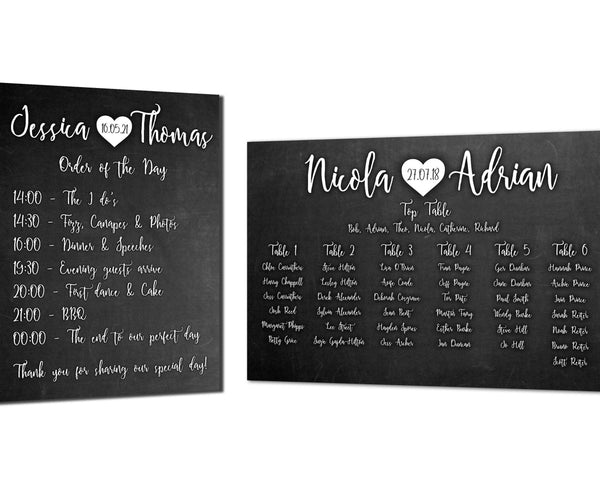 Jessica 16.05.21 Thomas
Order of the Day
14:00 - The I do's
14:30 - Fizz, Canapes & Photos
16:00 - Dinner & Speeches
19:30 - Evening guests arrive
20:00 - First dance & Cake
21:00 - BBQ
00:00 - The end to our perfect day
Thank you for sharing our special day!
Nicola 27.07.18 Adrian
Top Table
Bob, Adrian, Theo, Nicola, Catherine, Richard
Table 1
Chloe Carruthers
Harry Chappell
Jess Carruthers
Josh Reid
Margaret Phipps
Betty Grice
Table 2
Steve Hilton
Lesley Hilton
Derek Alexander
Sylvia Alexander
Lee Street
Table 3
Lisa O'Brien
Deborah Cosgrove
Sean Best
Hayden Spicer
Jess Archer
Table 4
Fran Payne
Jeff Payne
Tim Pate
Martin Tang
Esther Beake
Jan Duncan
Table 5
Ger Dunbar
Jane Dunbar
Paul Smith
Wendy Beake
Steve Hill
Jo Hill
Table 6
Hannah Prince
Archie Prince
Ian Prince
Sarah Reiter
Noah Reiter
Bruno Reiter
Scott Reiter